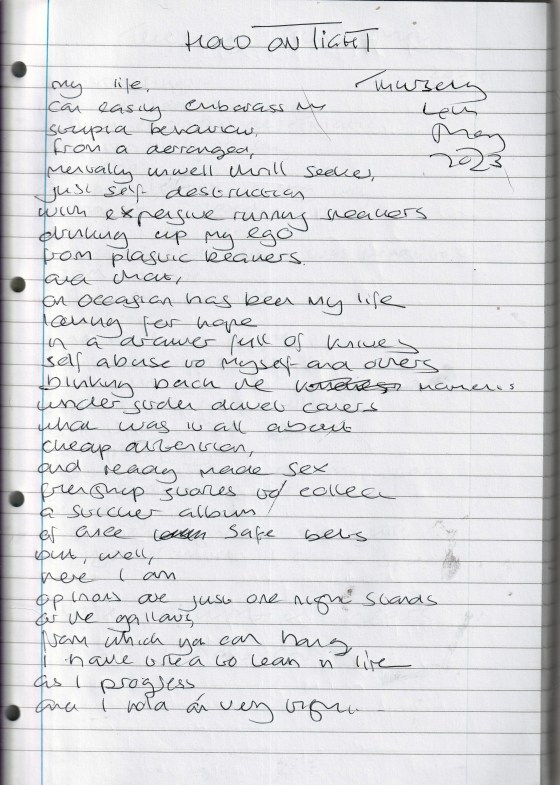 HOLD ON TIGHT
Thursday
my life,
can easily embarass my
stupid behaviour,
May
2023
from a derranged,
mentally unwell thrill seeker,
just self destruction
with expensive running sneakers
drinking up my ego
from plastic beakers.
and that,
on occasion has been my life
looking for hope
in a drawer full of knives
self abuse to myself and others
blinking back the
under sodden duvet covers
what was it all about
cheap attention,
and ready made sex
frienship stories to collect
a sticker album
of once safe bets
but, well,
here I am
opinions are just one night stands
or the gallows,
from which you can hang
I have tried to lean in life
as I progress
and I hold on very tight..